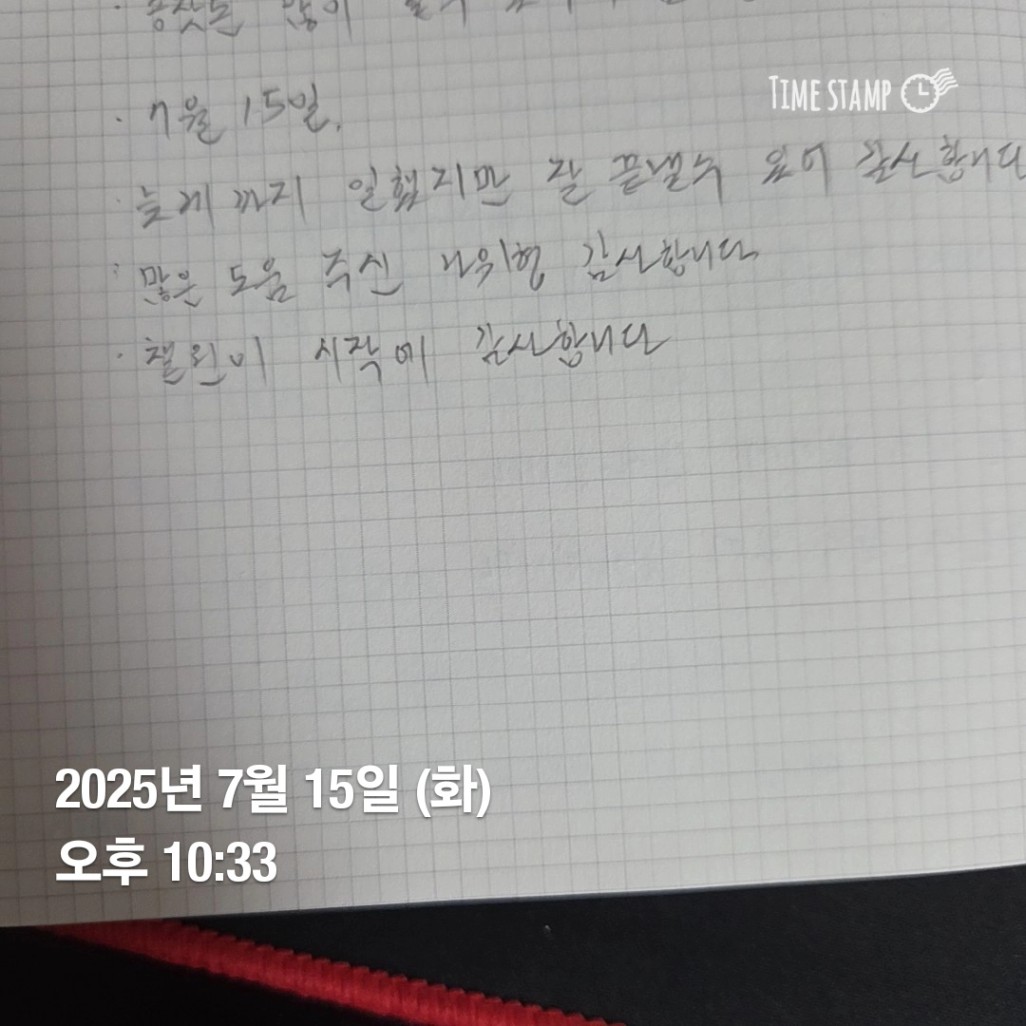 많이
TIME STAMP
· 7월 15일.
· 늦게 까지 일했지만 잘 끝낼수 있어 감사합니다
· 많은 도움 주신 감사합니다
· 챌린이 시작에 감사합니다
2025년 7월 15일 (화)
오후 10:33